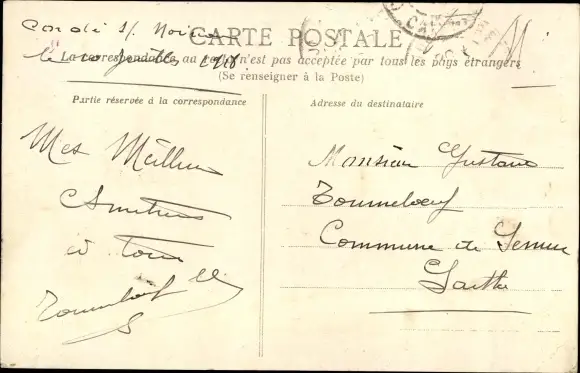 Condé s/ Noireau
le 10 Juillet 1908
CARTE POSTALE
La correspondance au recto n'est pas acceptée par tous les pays étrangers
(Se renseigner à la Poste)
Partie réservée à la correspondance
Mes Meilleures
Amitiés
à tous
Tournebœuf
Adresse du destinataire
Monsieur Gustave
Tournebœuf
Commune de Semur
Sarthe